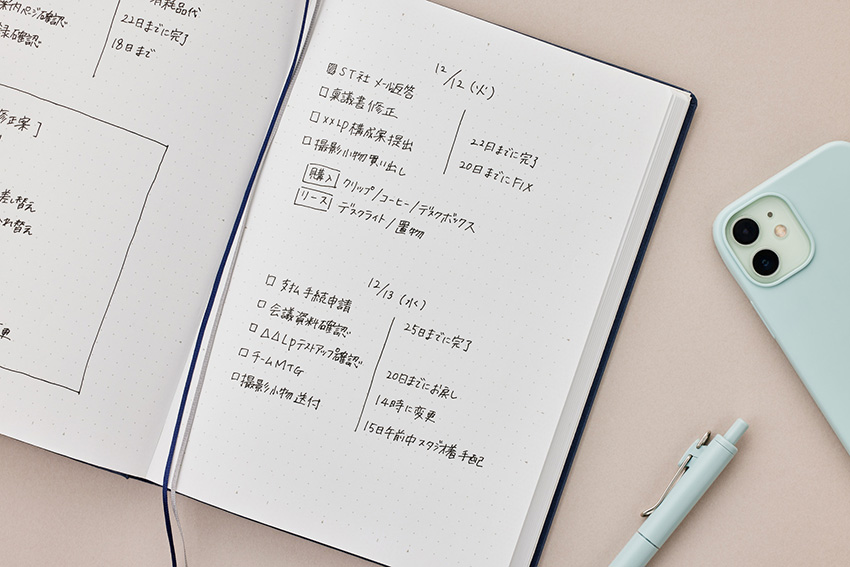 消耗品代
22日までに完了
18日まで
修正案]
差し替え
12/12 (火)
ST社 メール返答
稟議書修正
××LP構成案提出
撮影小物買い出し
22日までに完了
20日までにFIX
購入 クリップ/コーヒー/デスクボックス
リース デスクライト/置物
12/13 (水)
□ 支払手続申請
□ 会議資料確認
□ △△LPテストアップ確認
□ チームMTG
□ 撮影小物送付
25日までに完了
20日までにお戻し
14時に変更
15日午前中スタジオ着手配